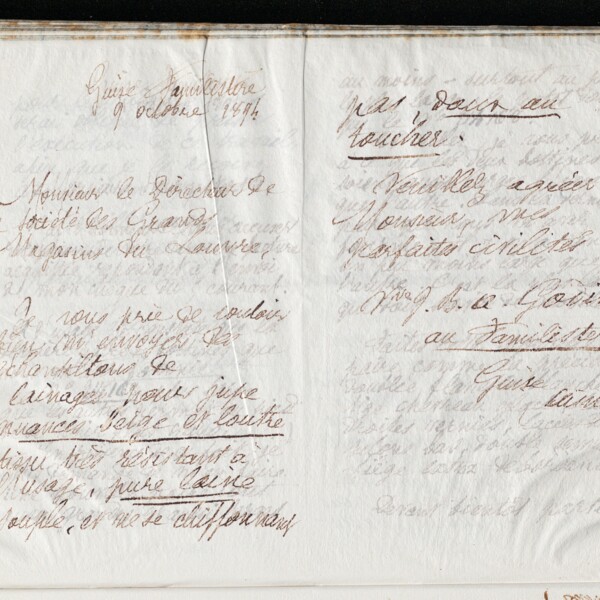 Guise Familistère
9 octobre 1894
Monsieur le Directeur de
Société des Grands
Magasins du Louvre,
Je vous prie de vouloir
bien m'envoyer des
échantillons de
lainage, pour jupe
nuances beige et loutre
tissu très résistant à
l'usage, pure laine
souple, et ne se chiffonnant
pas, doux au
toucher.
Veuillez agréer
Monsieur mes
parfaites civilités
Vve J. B. A. Godin
au Familistère
Guise